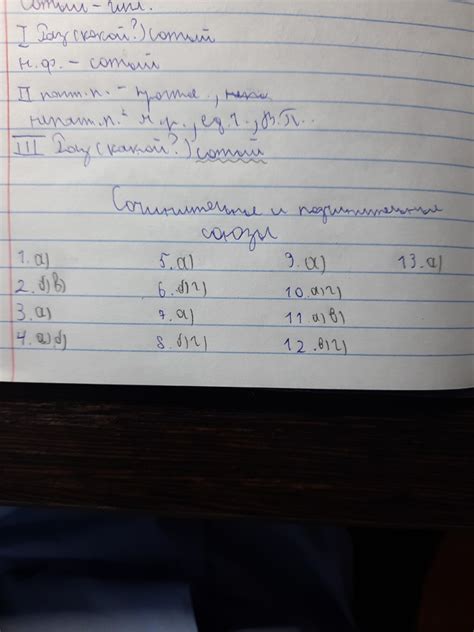 Сотый - чис.
I Раз (какой?) сотый
н.ф. - сотый
II пост.п. - простое,
непост.п.: м.р., ед.ч., В.П.
III Раз (какой?) сотый
Сочинительные и подчинительные
союзы
1. а) 5. а) 9. а) 13. а)
2. б)в) 6. б)г) 10. а)г)
3. а) 7. а) 11. а)в)
4. а)б) 8. б)г) 12. в)г)